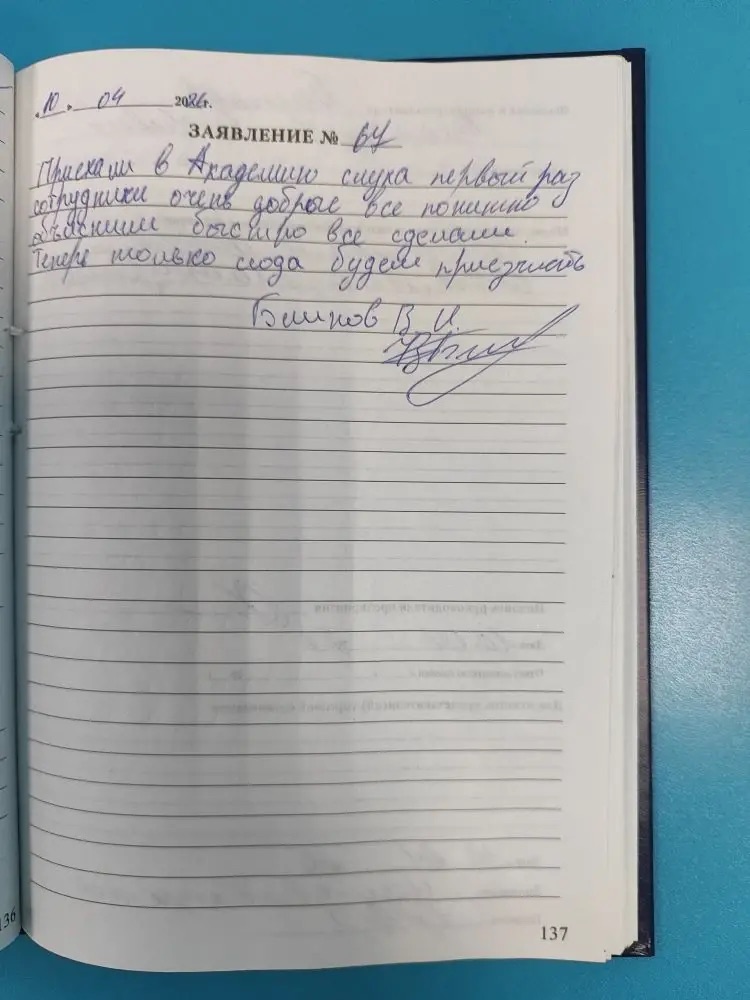 "10." 04 2026г.
ЗАЯВЛЕНИЕ № 67
Приехали в Академию слуха первый раз
сотрудники очень добрые все понятно
объяснили быстро все сделали.
Теперь только сюда будем приезжать
В. И.
137
136